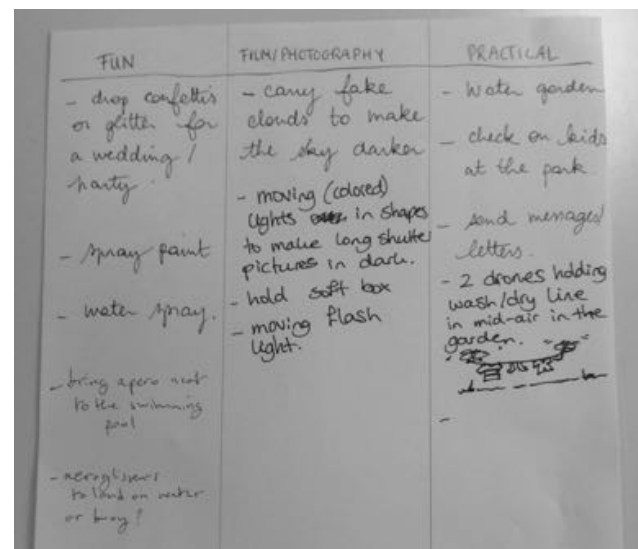 FUN
- drop confettis
or glitter for
a wedding /
party.
- spray paint
- water spray.
- bring apero next
to the swimming
pool
to land on water
or buoy?
FILM/PHOTOGRAPHY
- carry fake
clouds to make
the sky darker
- moving (colored)
lights in shapes
to make long shutter
pictures in dark.
- hold soft box
- moving flash
light.
PRACTICAL
- Water garden
- check on kids
at the park.
- send messages/
letters.
- 2 drones holding
wash/dry line
in mid-air in the
garden.
-